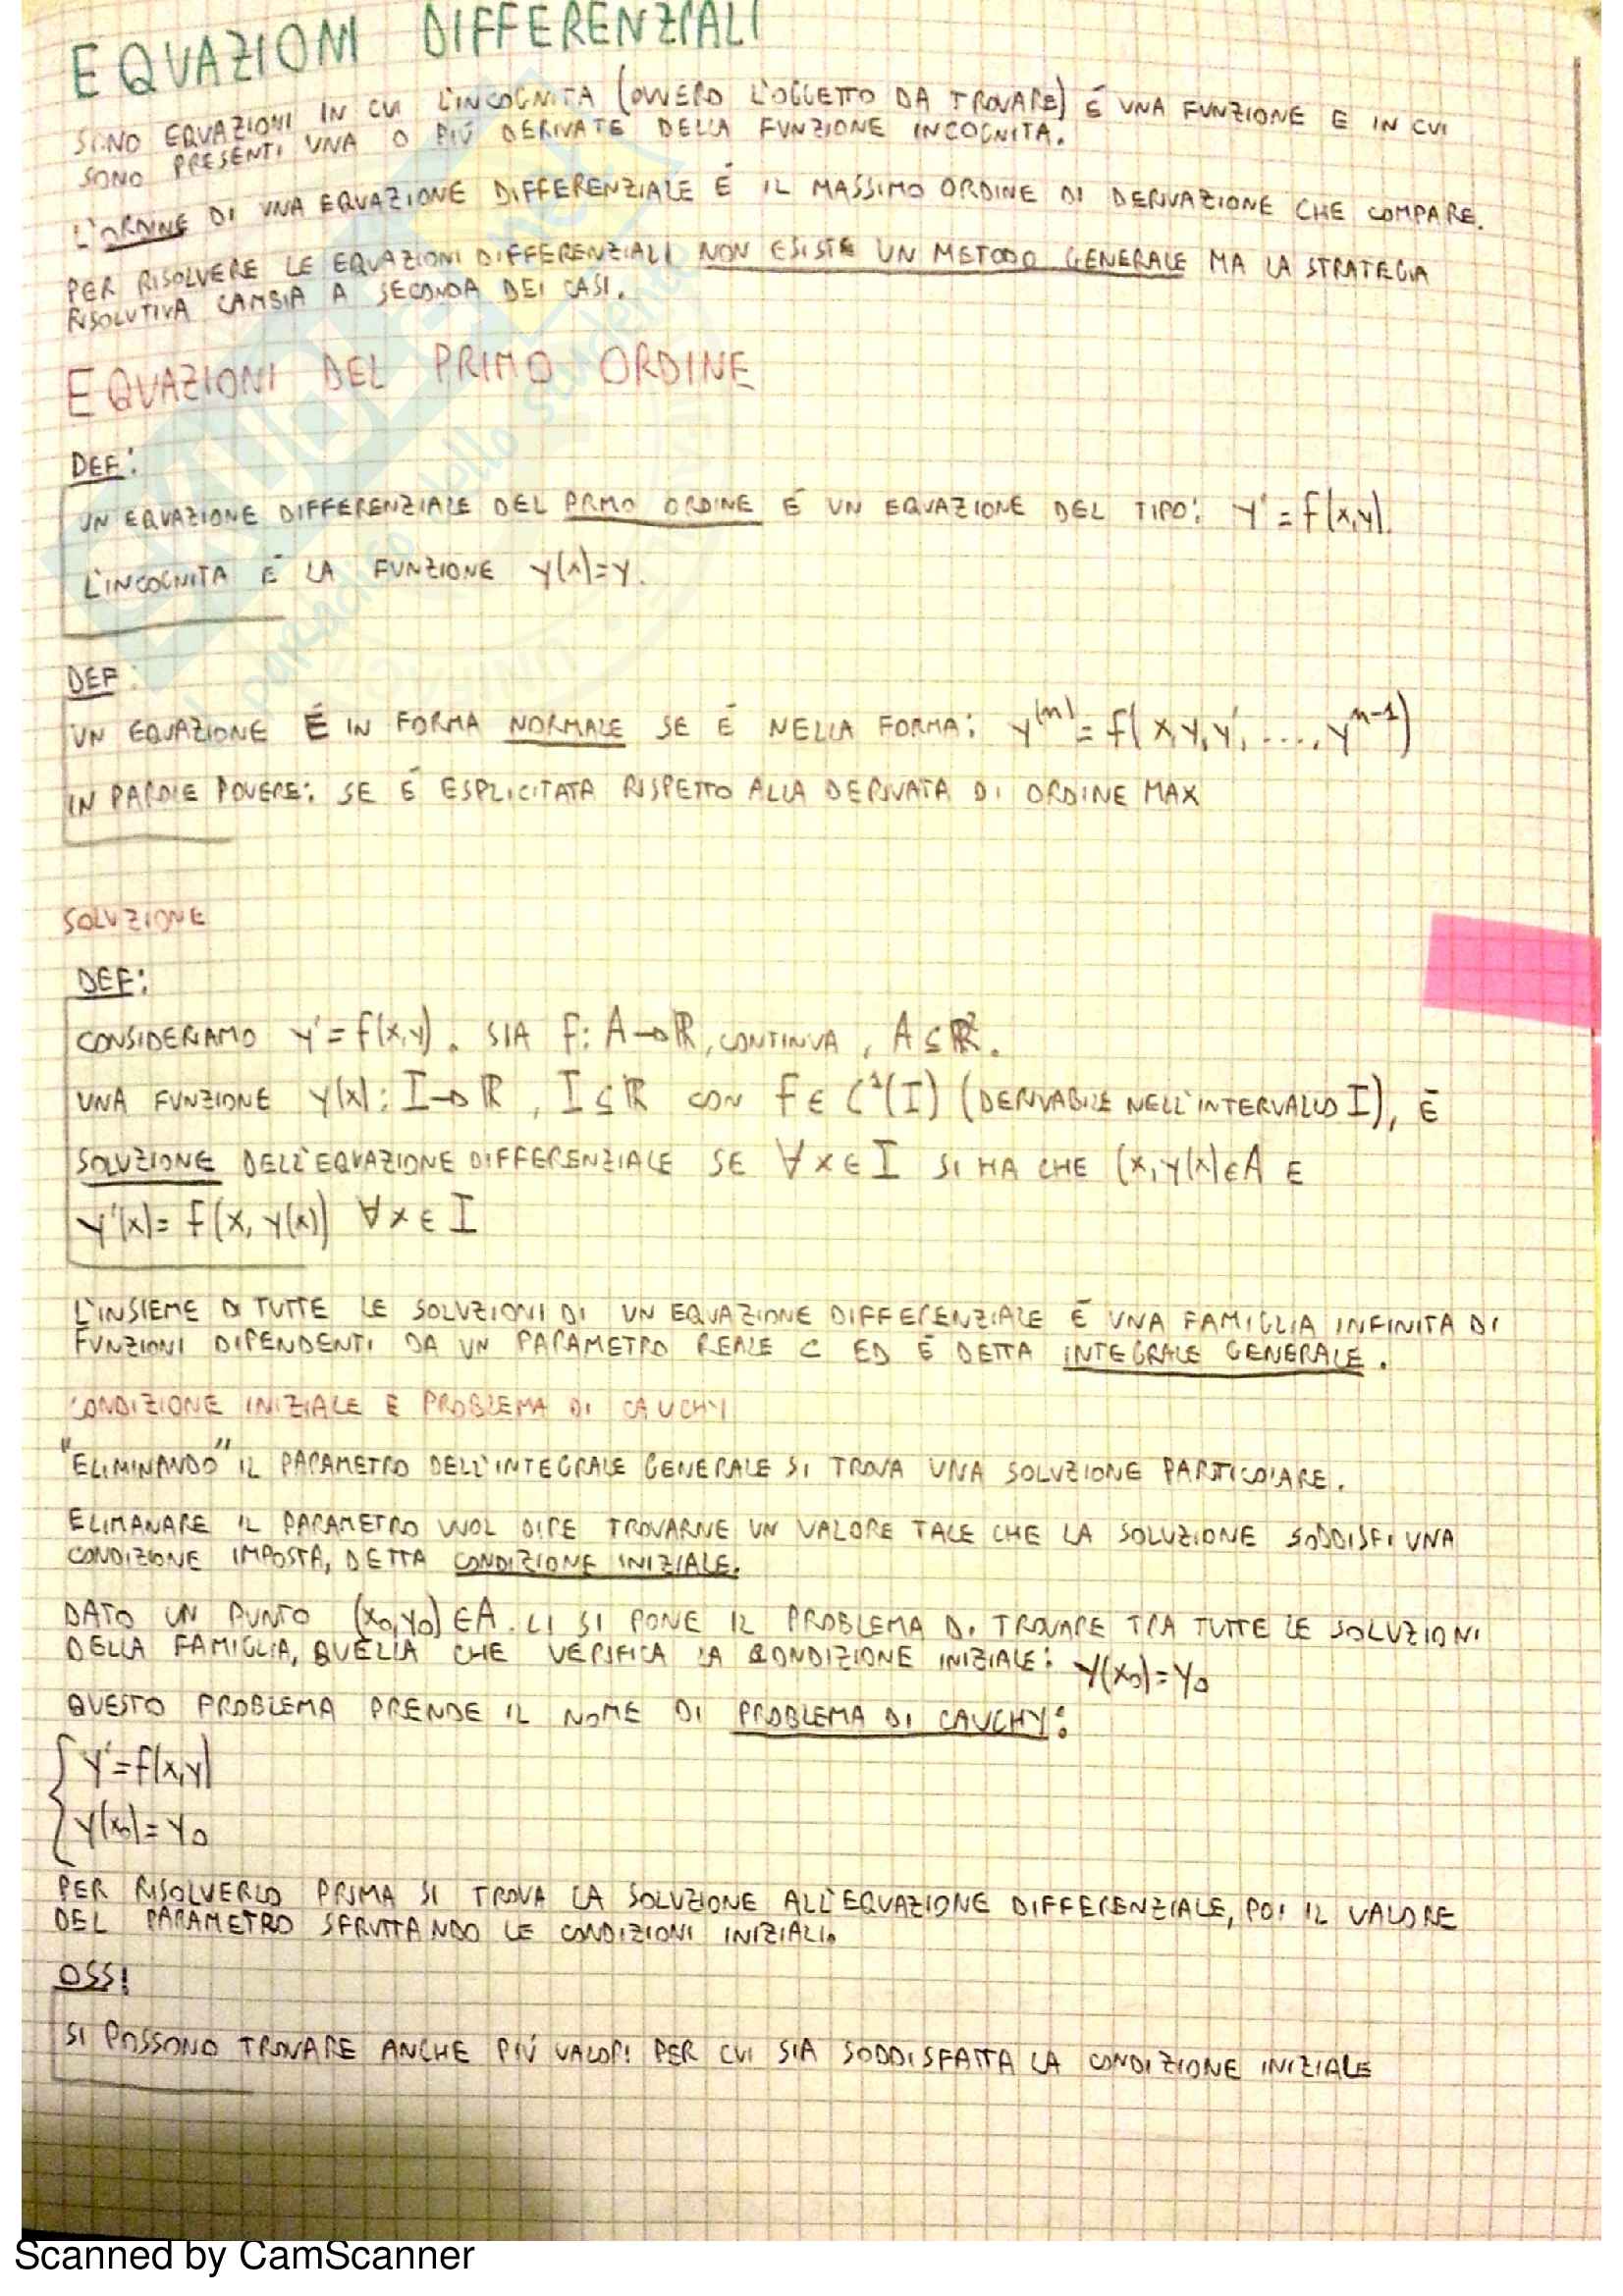 EQUAZIONI DIFFERENZIALI
SONO EQUAZIONI IN CUI L'INCOGNITA (OVVERO L'OGGETTO DA TROVARE) É UNA FUNZIONE E IN CUI
SONO PRESENTI UNA O PIÚ DERIVATE DELLA FUNZIONE INCOGNITA.
L'ORDINE DI UNA EQUAZIONE DIFFERENZIALE É IL MASSIMO ORDINE DI DERIVAZIONE CHE COMPARE.
PER RISOLVERE LE EQUAZIONI DIFFERENZIALI NON ESISTE UN METODO GENERALE MA LA STRATEGIA
RISOLUTIVA CAMBIA A SECONDA DEI CASI.
EQUAZIONI DEL PRIMO ORDINE
DEF:
UN EQUAZIONE DIFFERENZIALE DEL PRMO ORDINE É UN EQUAZIONE DEL TIPO: y' = f(x,y).
L'INCOGNITA É LA FUNZIONE y(x)=y.
DEF:
UN EQUAZIONE É IN FORMA NORMALE SE É NELLA FORMA: y^(n) = f(x,y,y',....,y^n-1)
IN PAROLE POVERE: SE É ESPLICITATA RISPETTO ALLA DERIVATA DI ORDINE MAX
SOLUZIONE
DEF:
CONSIDERIAMO y'=f(x,y). SIA f: A→ℝ, CONTINUA, A⊆ℝ².
UNA FUNZIONE y(x): I→ℝ, I⊆ℝ CON f∈C¹(I) (DERIVABILE NELL'INTERVALLO I), É
SOLUZIONE DELL'EQUAZIONE DIFFERENZIALE SE ∀x∈I SI HA CHE (x,y(x)∈A E
y'(x)= f(x, y(x)) ∀x∈I
L'INSIEME DI TUTTE LE SOLUZIONI DI UN EQUAZIONE DIFFERENZIALE É UNA FAMIGLIA INFINITA DI
FUNZIONI DIPENDENTI DA UN PARAMETRO REALE C ED É DETTA INTEGRALE GENERALE.
CONDIZIONE INIZIALE E PROBLEMA DI CAUCHY
"ELIMINANDO" IL PARAMETRO DELL'INTEGRALE GENERALE SI TROVA UNA SOLUZIONE PARTICOLARE.
ELIMANARE IL PARAMETRO VUOL DIRE TROVARNE UN VALORE TALE CHE LA SOLUZIONE SODDISFI UNA
CONDIZIONE IMPOSTA, DETTA CONDIZIONE INIZIALE.
DATO UN PUNTO (x₀,y₀)∈A. CI SI PONE IL PROBLEMA DI TROVARE TRA TUTTE LE SOLUZIONI
DELLA FAMIGLIA, QUELLA CHE VERIFICA LA CONDIZIONE INIZIALE: y(x₀)=y₀
QUESTO PROBLEMA PRENDE IL NOME DI PROBLEMA DI CAUCHY:
{ y'=f(x,y)
y(x₀)=y₀
PER RISOLVERLO PRIMA SI TROVA LA SOLUZIONE ALL'EQUAZIONE DIFFERENZIALE, POI IL VALORE
DEL PARAMETRO SFRUTTANDO LE CONDIZIONI INIZIALI.
OSS:
SI POSSONO TROVARE ANCHE PIÚ VALORI PER CUI SIA SODDISFATTA LA CONDIZIONE INIZIALE
Scanned by CamScanner